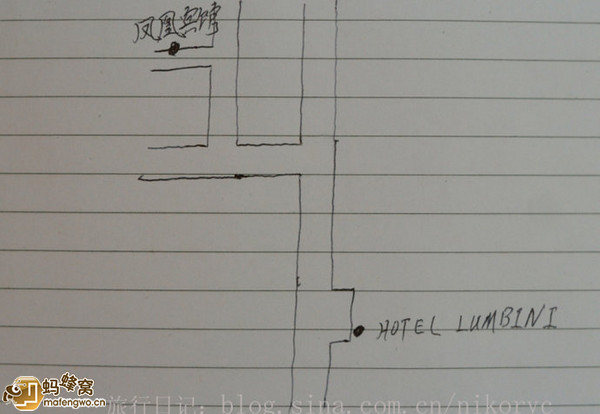 凤凰宾馆
HOTEL LUMBINI
蚂蜂窝
mafengwo.cn
旅行日记: blog.sina.com.cn/nikoryc